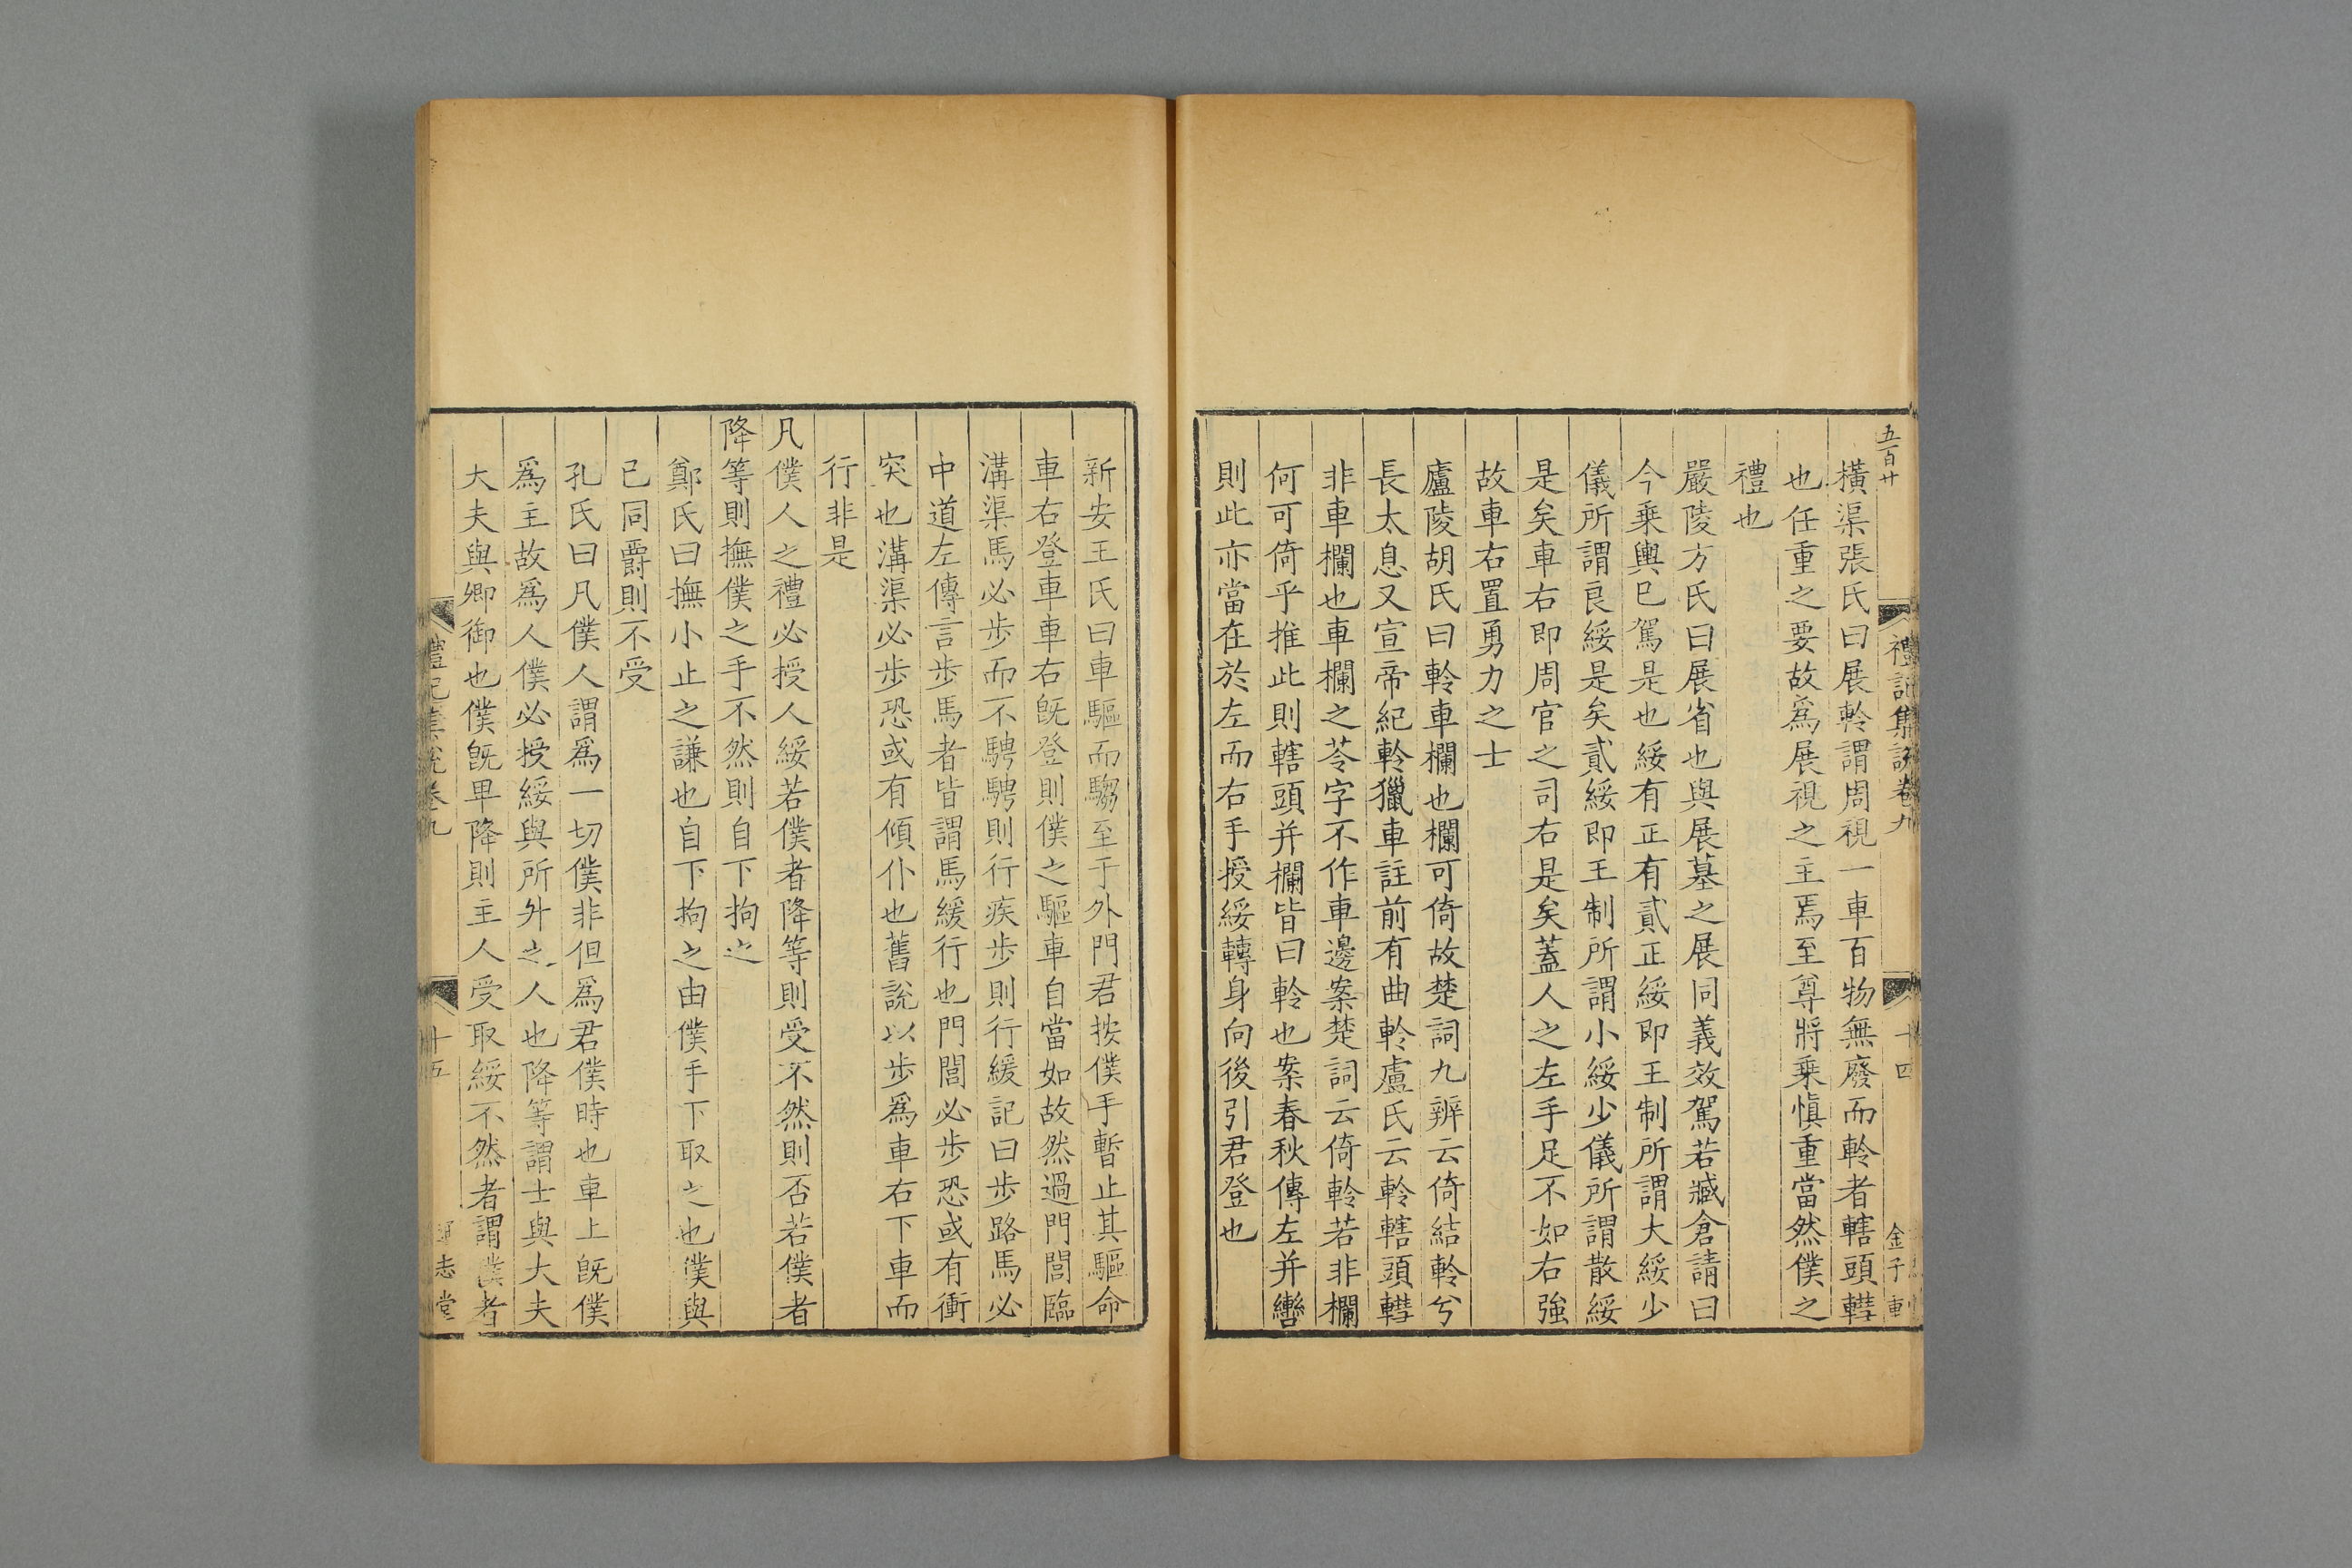 五百廿
禮記集說卷九
十四
金子重
橫渠張氏曰展軨謂周視一車百物無廢而軨者轄頭轊
也任重之要故爲展視之主焉至尊將乗愼重當然僕之
禮也
嚴陵方氏曰展省也與展墓之展同義效駕若臧倉請曰
今乗輿巳駕是也綏有正有貳正綏即王制所謂大綏少
儀所謂良綏是矣貳綏即王制所謂小綏少儀所謂散綏
是矣車右即周官之司右是矣蓋人之左手足不如右強
故車右置勇力之士
廬陵胡氏曰軨車欄也欄可倚故楚詞九辨云倚結軨兮
長太息又宣帝紀軨獵車註前有曲軨盧氏云軨轄頭轊
非車欄也車欄之苓字不作車邊案楚詞云倚軨若非欄
何可倚乎推此則轄頭并欄皆曰軨也案春秋傳左并轡
則此亦當在於左而右手授綏轉身向後引君登也
新安王氏曰車驅而騶至于外門君按僕手暫止其驅命
車右登車車右旣登則僕之驅車自當如故然過門閭臨
溝渠馬必步而不騁騁則行疾步則行緩記曰步路馬必
中道左傳言步馬者皆謂馬緩行也門閭必步恐或有衝
突也溝渠必步恐或有傾仆也舊說以步爲車右下車而
行非是
凡僕人之禮必授人綏若僕者降等則受不然則否若僕者
降等則撫僕之手不然則自下拘之
鄭氏曰撫小止之謙也自下拘之由僕手下取之也僕與
已同爵則不受
孔氏曰凡僕人謂爲一切僕非但爲君僕時也車上旣僕
爲主故爲人僕必授綏與所升之人也降等謂士與大夫
大夫與卿御也僕旣卑降則主人受取綏不然者謂僕者
禮記集說卷九
十五
志堂